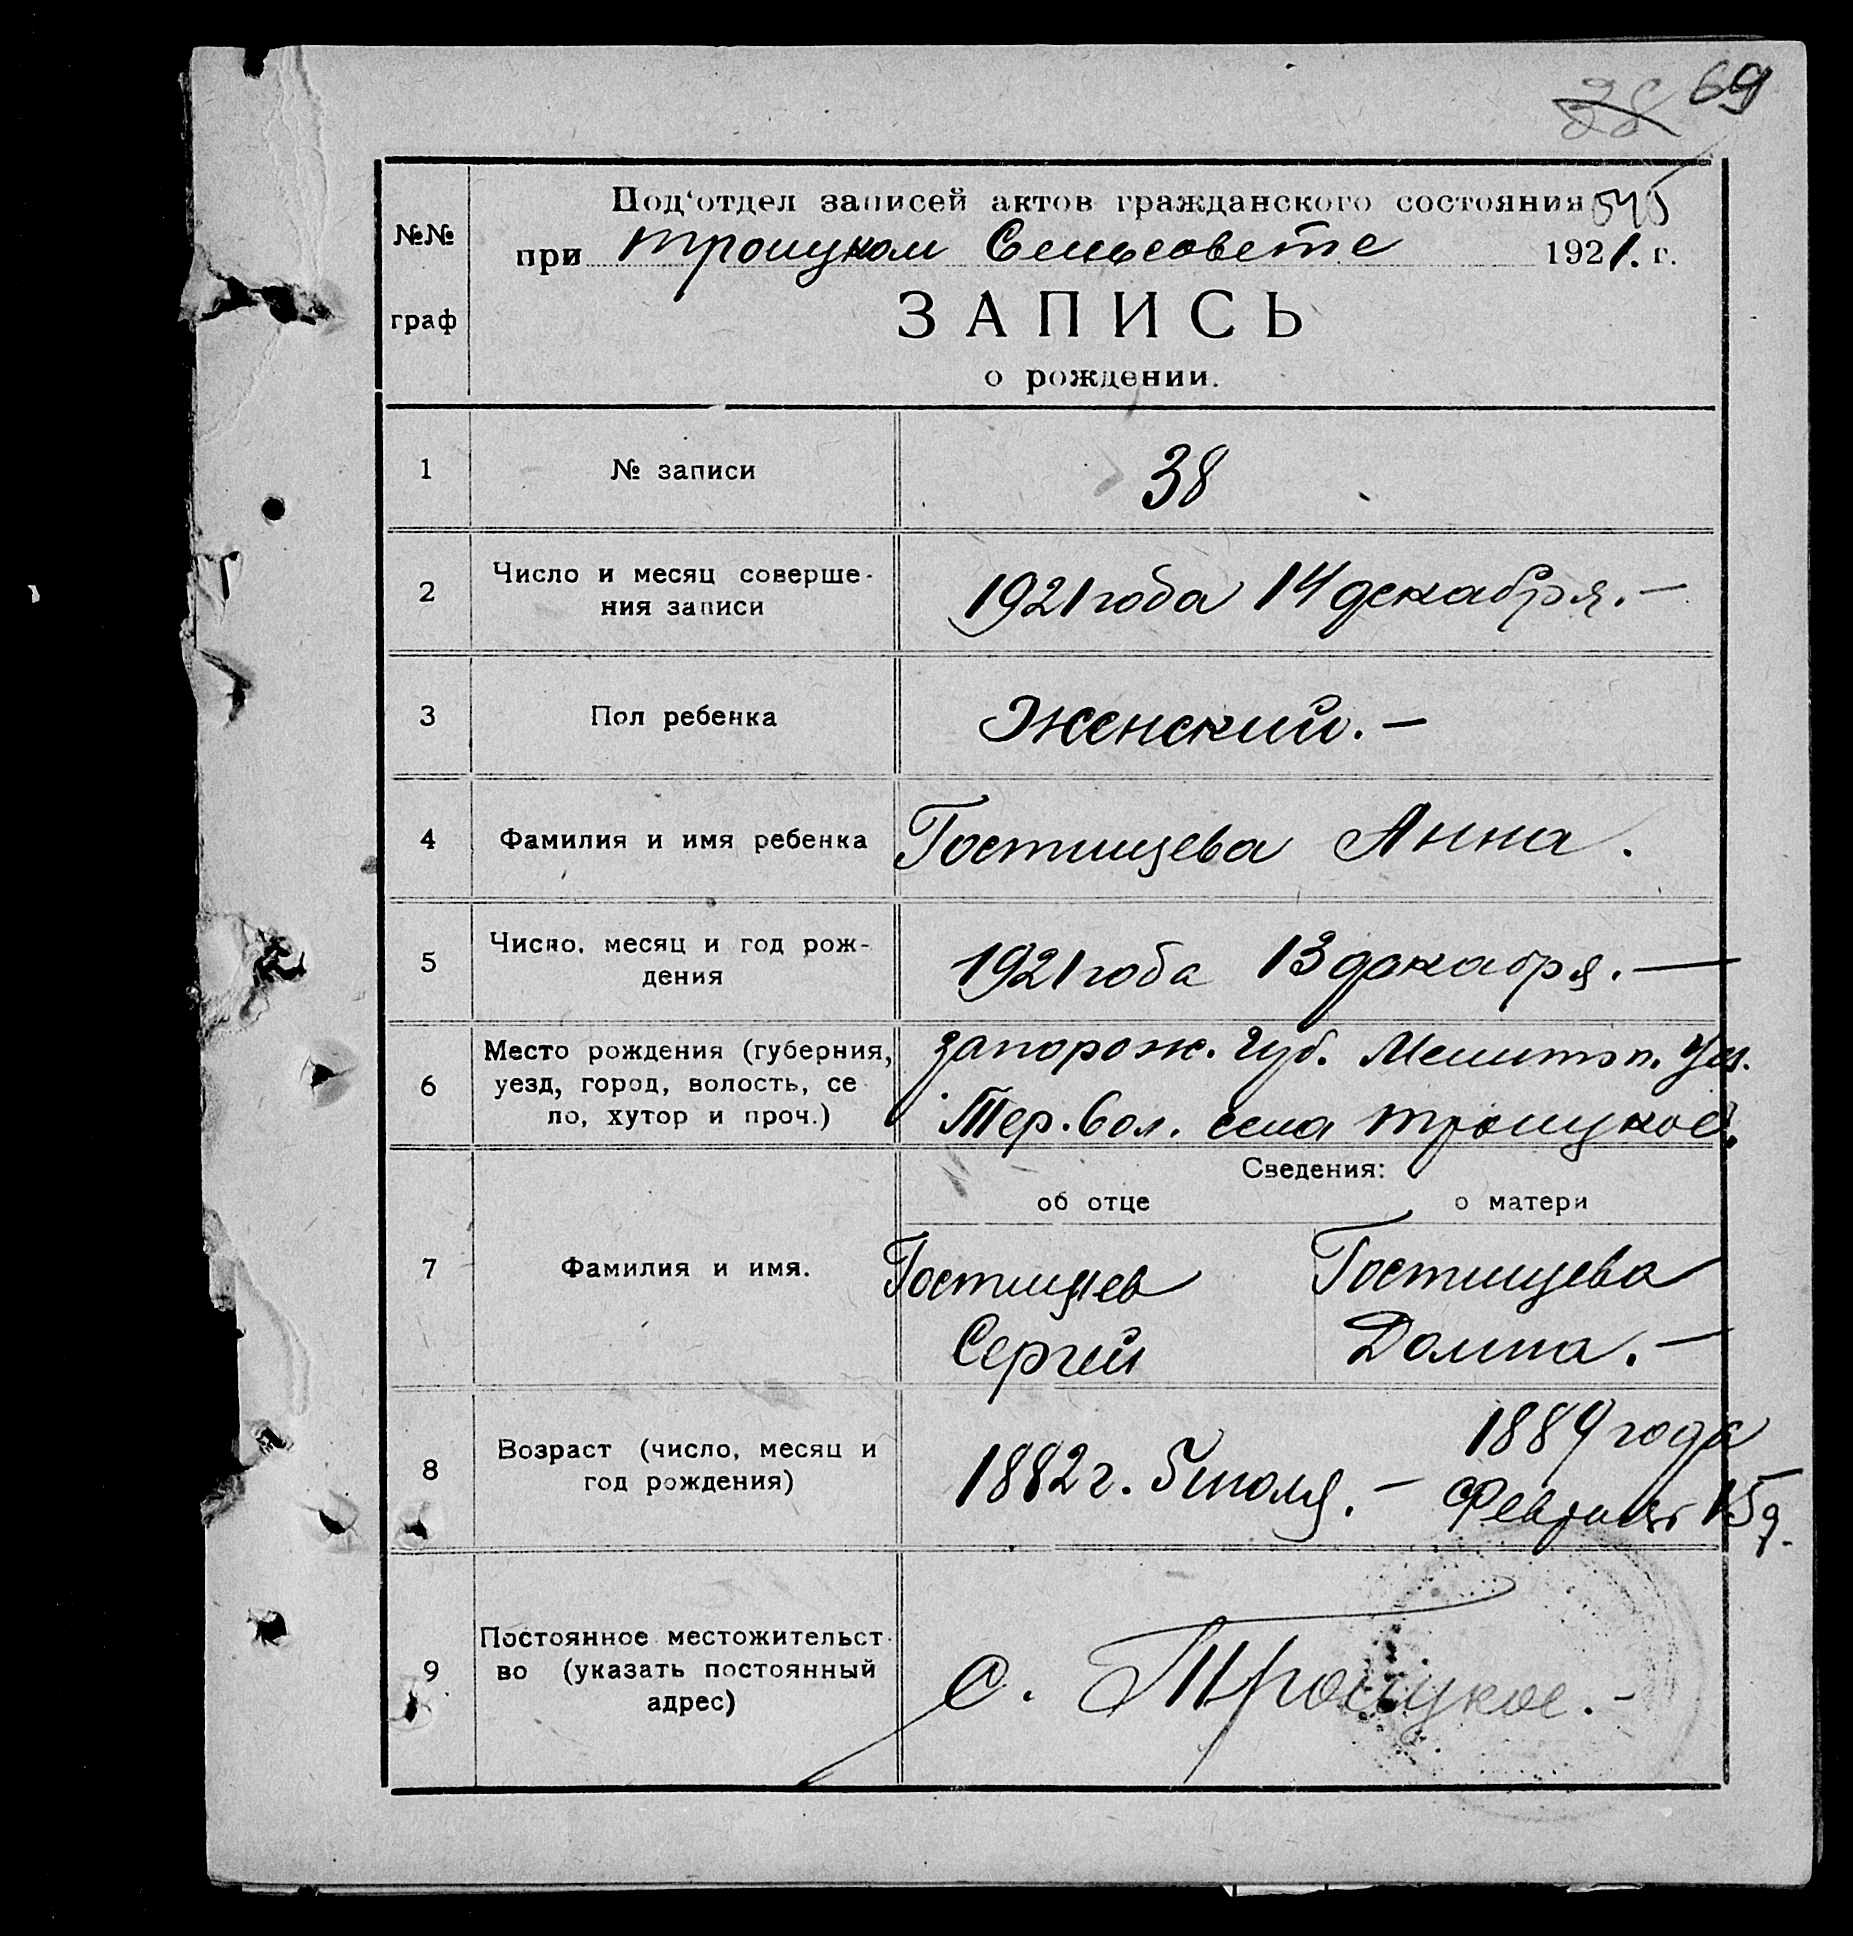 38 69
Под‘отдел записей актов гражданского состояния 545
№№
при троицком Сельсовете 1921. г.
граф
ЗАПИСЬ
о рождении.
1 № записи 38
2 Число и месяц соверше-
ния записи
1921 года 14 декабря. —
3 Пол ребенка Женский. —
4 Фамилия и имя ребенка Гостищева Анна.
5 Число, месяц и год рож-
дения
1921 года 13 декабря. —
6 Место рождения (губерния,
уезд, город, волость, се
ло, хутор и проч.)
запорож. губ. Мелитоп. уез.
Тер. вол. села троицкое.
Сведения:
об отце о матери
7 Фамилия и имя.
Гостищев Гостищева
Сергей Домна. —
8 Возраст (число, месяц и
год рождения)
1882 г. 5 июля. — 1889 года
Февраля 15 д.
9 Постоянное местожительст-
во (указать постоянный
адрес)
с. Троицкое. —